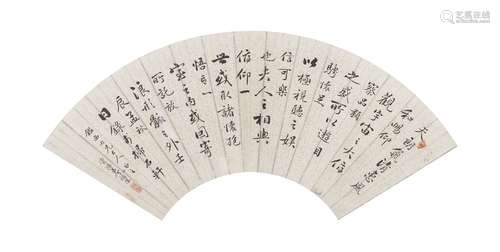 天朗氣清惠風
和暢仰
觀宇宙之大俯
察品類
之盛所以遊目
騁懷足
以極視聽之娛
信可樂
也夫人之相與
俯仰一
世或取諸懷抱
悟言一
室之內或因寄
所託放
浪形骸之外壬
辰孟秋
日錄於掃石軒